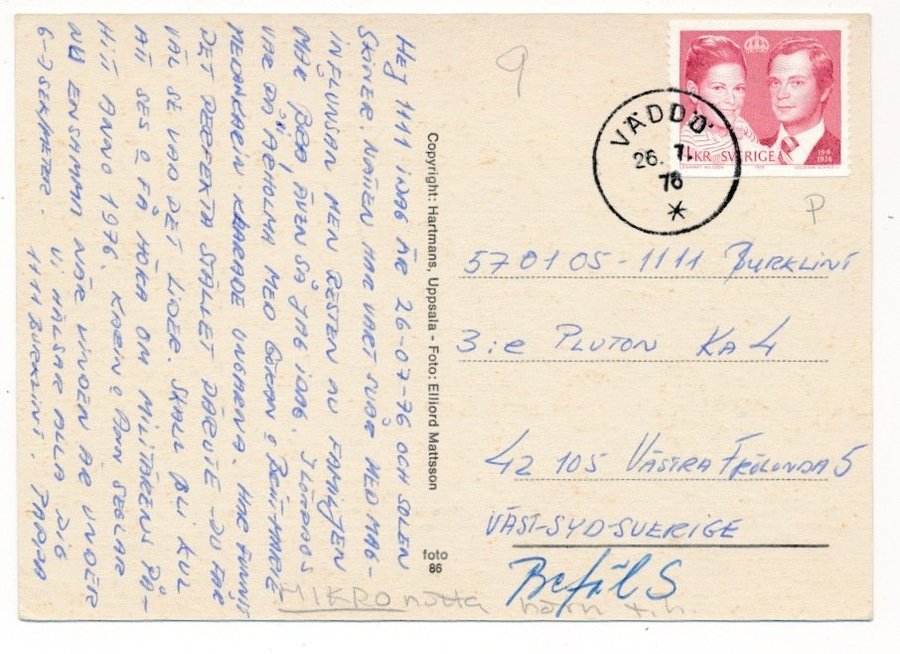 HEJ 1111 IDAG ÄR 26-07-76 OCH SOLEN
SKINER. NATTEN HAR VART SVÅR MED MAG-
INFLUNSAN MEN RESTEN AV FAMILJEN
MÅR BRA, ÄVEN SÅ JAG IDAG. I LÖRDAGS
VAR VI PÅ ARHOLMA MED GÖRAN & BRITT-MARIE
MEDAN KARIN KLARADE UNGARNA. HAR FUNNIT
DET PERFEKTA STÄLLET DÄRUTE - DU FÅR
VÄL SE VAD DET LIDER. SKALL BLI KUL
ATT SES & FÅ HÖRA OM MILITÄRENS PÅ-
HITT ANNO 1976. KARIN & ANN SEGLAR
NU ENSAMMA NÄR VINDEN ÄR UNDER
6-7 SEK.METER.
VI HÄLSAR ALLA DIG
1111 BURKLINT. PAPPA
Copyright: Hartmans, Uppsala - Foto: Elliord Mattsson
foto
86
9
VÄDDÖ
26. 7.
76
1 KR SVERIGE
1976
P
570105-1111 BURKLINT
3:e PLUTON KA 4
42 105 VÄSTRA FRÖLUNDA 5
VÄST-SYD-SVERIGE
Befäl S
MIKRO